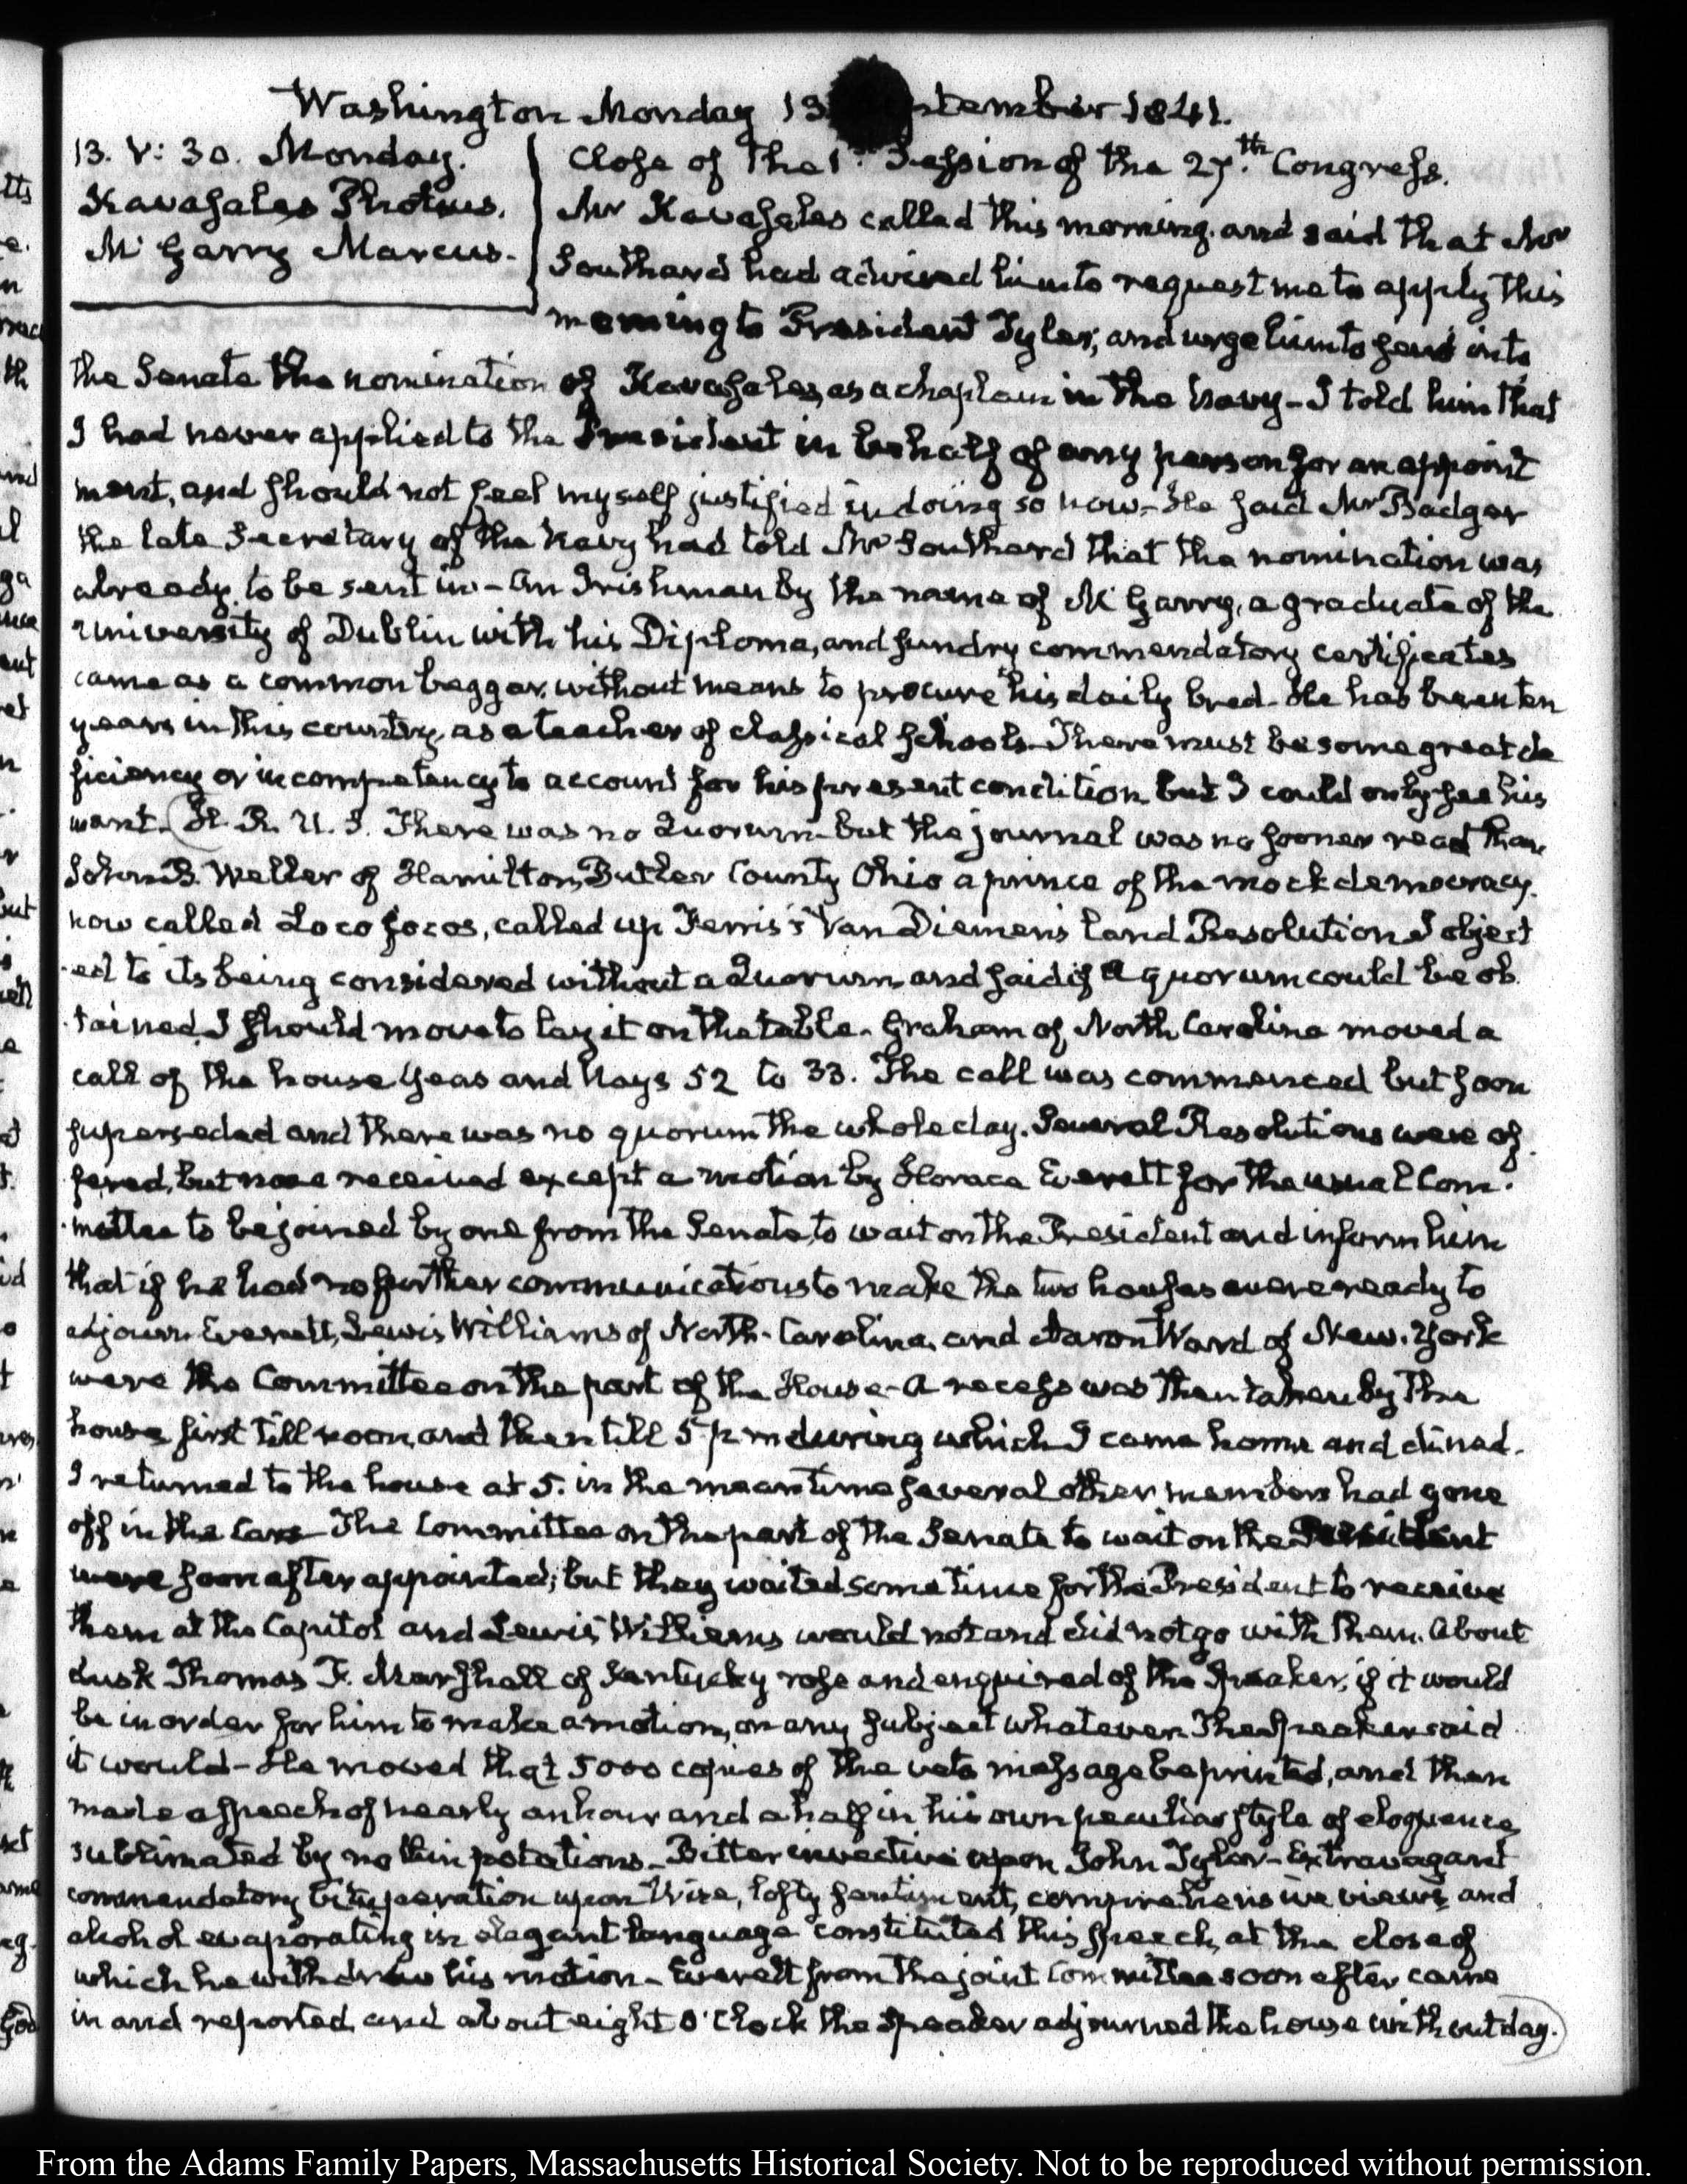 Washington Monday 13 tember 1841.
13. V: 30. Monday.
Kavasales Photius.
McGarry Marcus.
Close of the 1st Session of the 27th Congress.
Mr Kavasales called this morning, and said that Mr
Southard had advised him to request me to apply this
morning to President Tyler, and urge him to send into
the Senate the nomination of Kavasales, as a chaplain in the Navy - I told him that
I had never applied to the President in behalf of any person for an appoint
ment, and should not feel myself justified in doing so now - He said Mr Badger
the late Secretary of the Navy had told Mr Southard that the nomination was
already to be sent in - An Irishman by the name of McGarry, a graduate of the
University of Dublin with his Diploma, and sundry commendatory certificates
came as a common beggar, without means to procure his daily bred - He has been ten
years in this country, as a teacher of classical schools - There must be some great de
ficiency or incompetency to account for his present condition but I could only see his
want. (H. R. U. S. There was no Quorum - but the journal was no sooner read than
John B. Weller of Hamilton, Butler County Ohio a prince of the mock democracy.
now called Locofocos, called up Ferris's Van Diemen's land Resolution I object
-ed to its being considered without a Quorum, and said if a quorum could be ob
-tained, I should move to lay it on the table - Graham of North Carolina moved a
call of the house Yeas and Nays 52 to 33. The call was commenced but soon
superseded and there was no quorum the whole day. Several Resolutions were of
fered, but none received except a motion by Horace Everett for the usual Com-
-mittee to be joined by one from the Senate, to wait on the President and inform him
that if he had no further communications to make the two houses were ready to
adjourn. Everett, Lewis Williams of North-Carolina, and Aaron Ward of New-York
were the Committee on the part of the House - A recess was then taken by the
house first till noon, and then till 5 p m during which I came home and dined -
I returned to the house at 5. in the mean time several other members had gone
off in the Cars - The Committee on the part of the Senate to wait on the President
were soon after appointed; but they waited some time for the President to receive
them at the Capitol and Lewis Williams would not and did not go with them. About
dusk Thomas F. Marshall of Kentucky rose and enquired of the Speaker, if it would
be in order for him to make a motion, on any subject whatever. The Speaker said
it would - He moved that 5000 copies of the veto message be printed, and then
made a speech of nearly an hour and a half in his own peculiar style of eloquence
sublimated by no thin potations - Bitter invective upon John Tyler - Extravagant
commendatory vituperation upon Wise, lofty sentiment, comprehensive views and
alcohol evaporating in elegant language constituted this speech, at the close of
which he withdrew his motion - Everett from the joint Committee soon after came
in and reported, and about eight O'Clock the Speaker adjourned the house without day.)
From the Adams Family Papers, Massachusetts Historical Society. Not to be reproduced without permission.